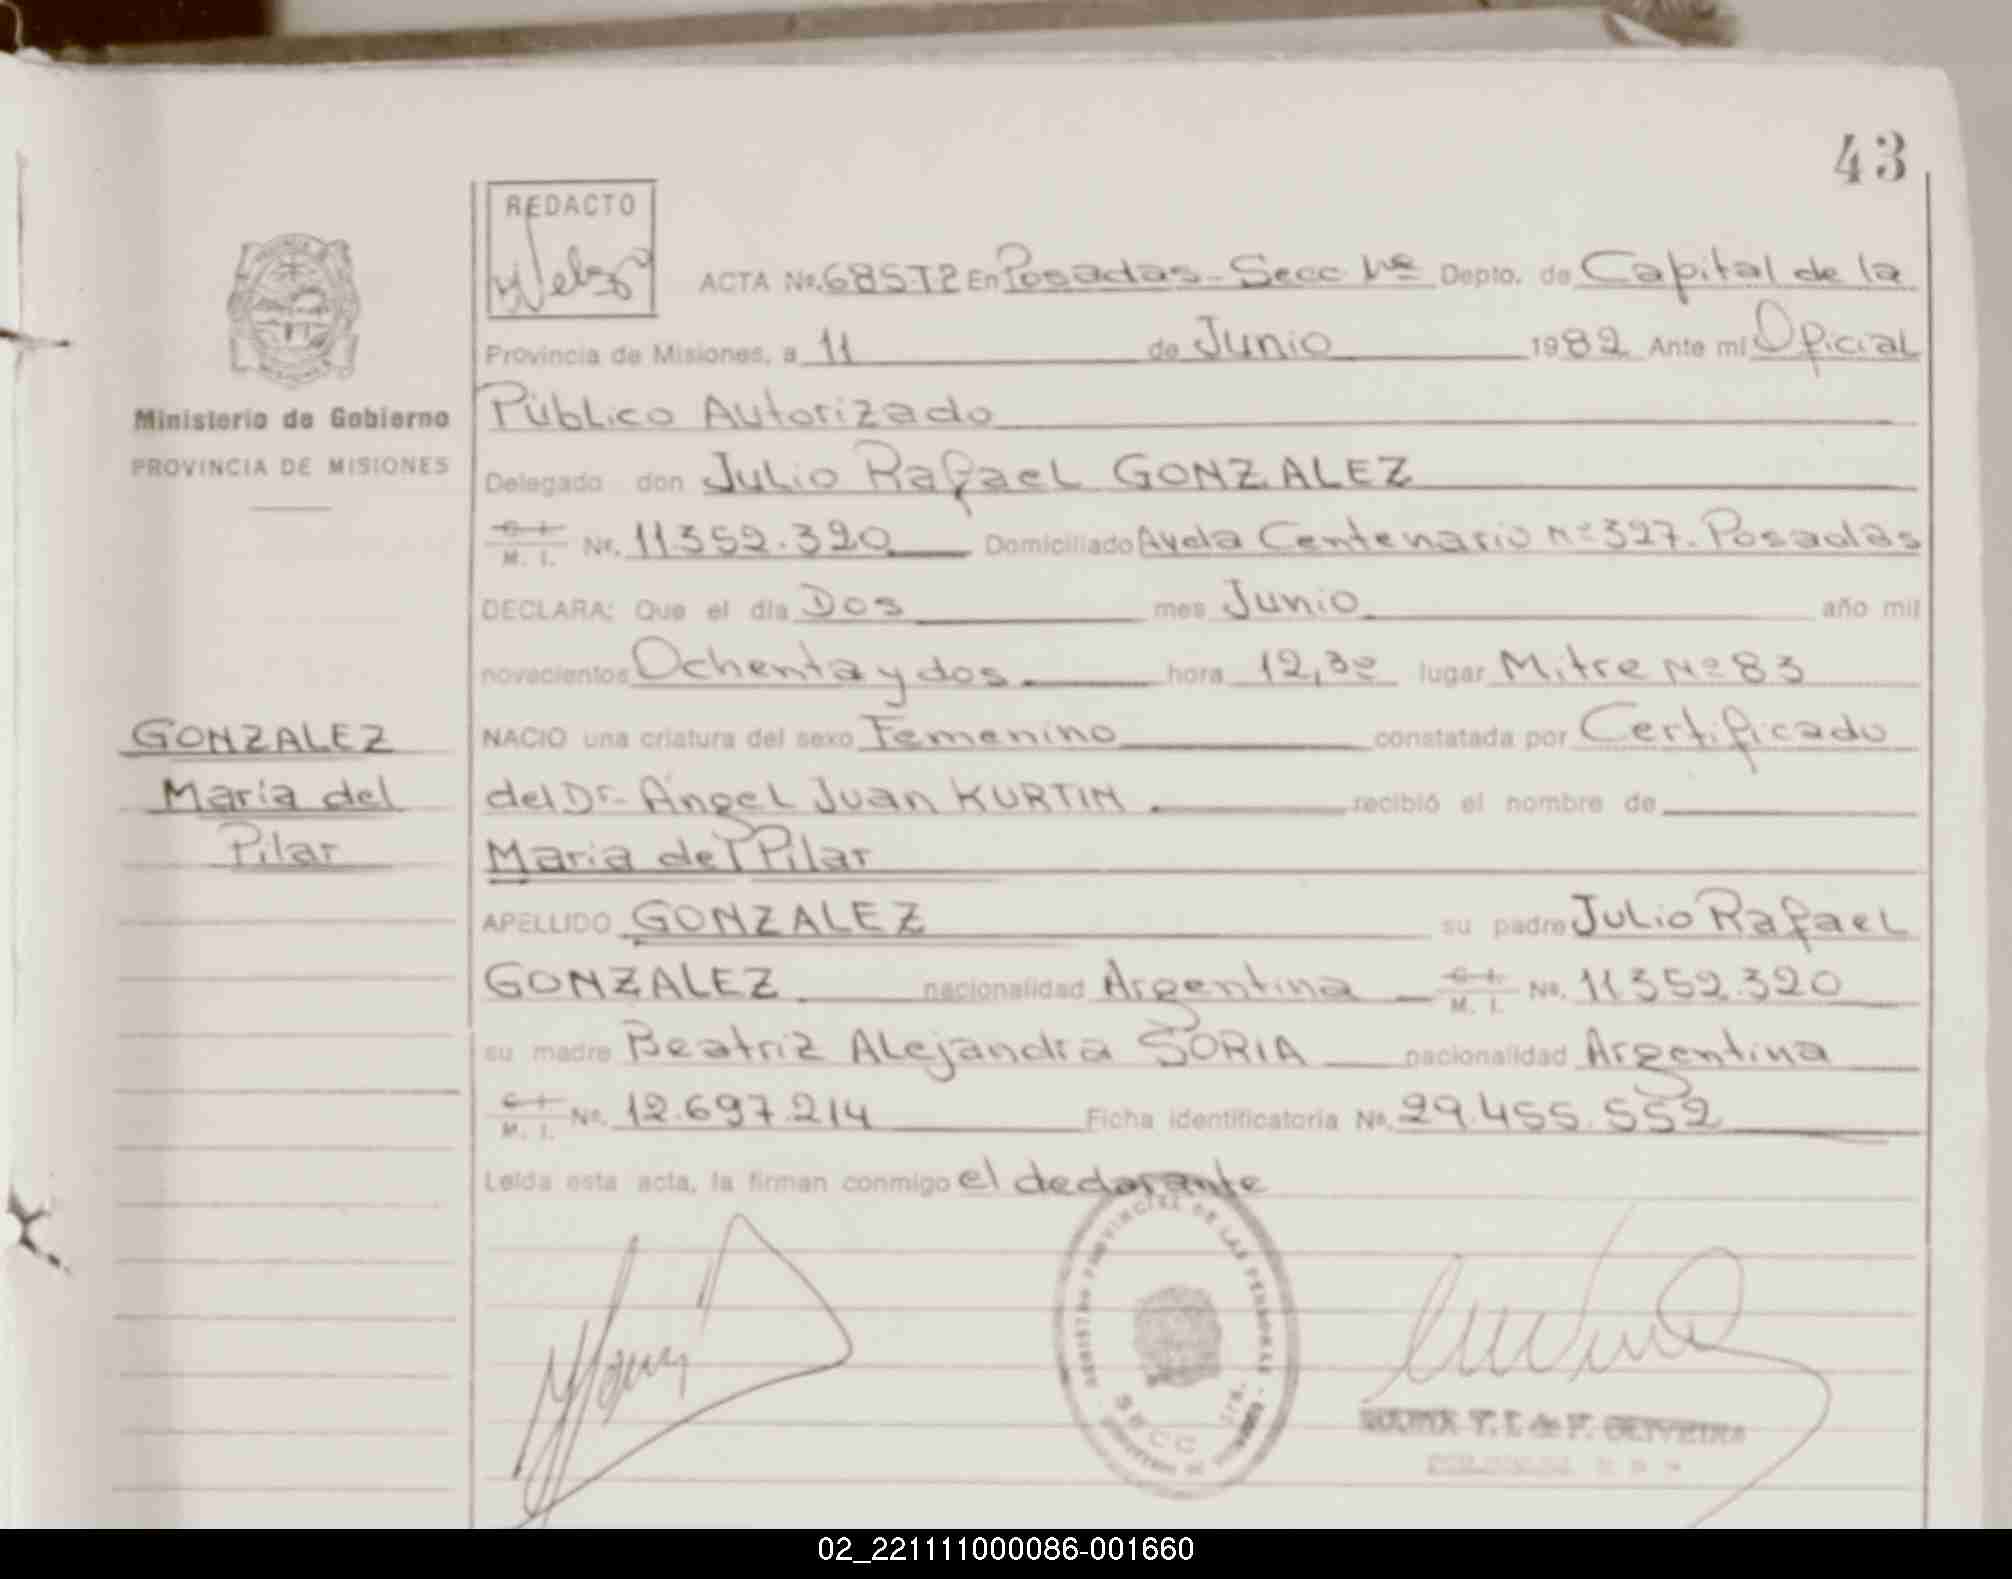 43
REDACTO
ACTA No. 685 T2 En Posadas - Secc 1ra Depto. de Capital de la
Provincia de Misiones, a 11 de Junio 1982 Ante mi Oficial
Ministerio de Gobierno
Público Autorizado
PROVINCIA DE MISIONES
Delegado don Julio Rafael GONZALEZ
C. I. M. I. No. 11352.320 Domiciliado Avda Centenario Nº 327. Posadas
DECLARA: Que el día Dos mes Junio año mil
novecientos Ochenta y dos hora 12,30 lugar Mitre Nº 83
GONZALEZ
NACIO una criatura del sexo Femenino constatada por Certificado
María del
del Dr. Ángel Juan KURTIN recibió el nombre de
Pilar
María del Pilar
APELLIDO GONZALEZ su padre Julio Rafael
GONZALEZ nacionalidad Argentina C. I. M. I. No. 11352.320
su madre Beatriz Alejandra SORIA nacionalidad Argentina
C. I. M. I. No. 12.697.214 Ficha identificatoria No. 29.455.552
Leída esta acta, la firman conmigo el declarante
REGISTRO PROVINCIAL DE LAS PERSONAS
SECC 1ra.
T. I. de F. OLIVEIRA
02_221111000086-001660